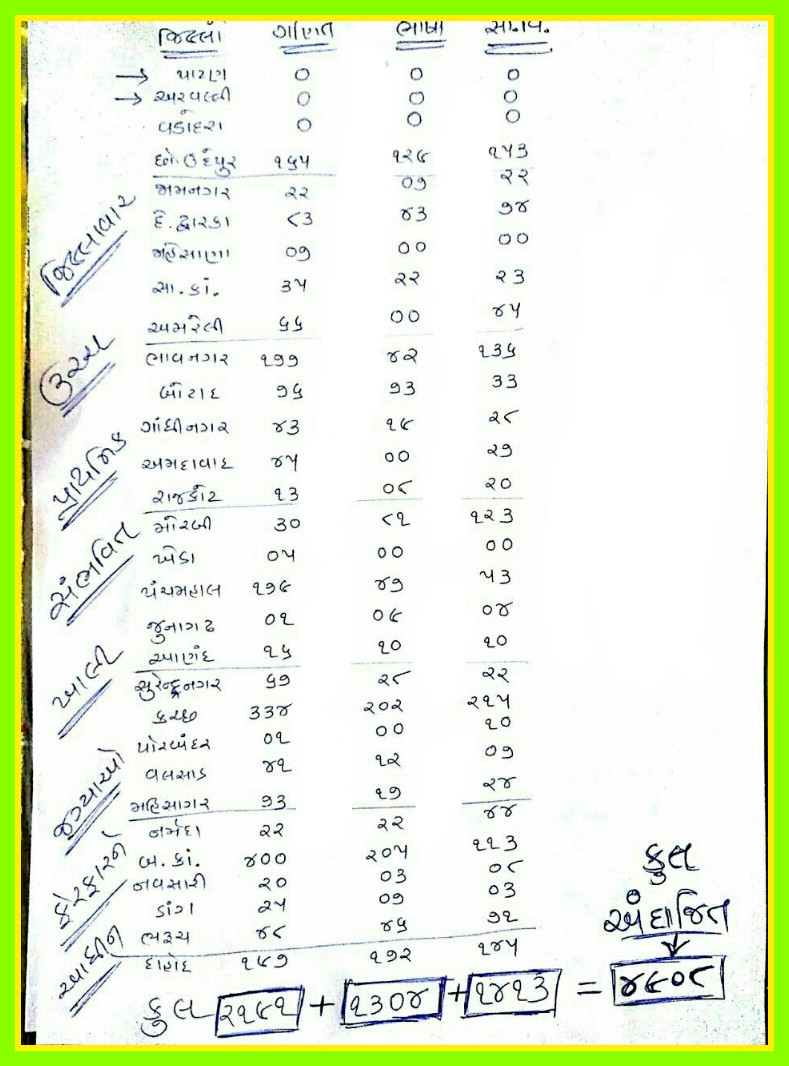 જિલ્લા ગણિત ભાષા સા.વિ.
→ પાટણ ૦ ૦ ૦
→ અરવલ્લી ૦ ૦ ૦
વડોદરા ૦ ૦ ૦
છો.ઉદેપુર ૧૬૫ ૧૨૯ ૧૫૩
જામનગર ૨૨ ૦૭ ૨૨
દે.દ્વારકા ૮૩ ૪૩ ૭૪
મહેસાણા ૦૭ ૦૦ ૦૦
સા.કાં. ૩૫ ૨૨ ૨૩
અમરેલી ૬૬ ૦૦ ૪૫
ભાવનગર ૧૭૭ ૪૨ ૧૩૬
બોટાદ ૭૬ ૭૩ ૩૩
ગાંધીનગર ૪૩ ૧૯ ૨૮
અમદાવાદ ૪૫ ૦૦ ૨૭
રાજકોટ ૧૩ ૦૮ ૨૦
મોરબી ૩૦ ૮૧ ૧૨૩
ખેડા ૦૫ ૦૦ ૦૦
પંચમહાલ ૧૭૯ ૪૭ ૫૩
જુનાગઢ ૦૧ ૦૯ ૦૪
આણંદ ૧૬ ૧૦ ૧૦
સુરેન્દ્રનગર ૬૭ ૨૮ ૨૨
કચ્છ ૩૩૪ ૨૦૨ ૨૧૫
પોરબંદર ૦૧ ૦૦ ૧૦
વલસાડ ૪૧ ૧૨ ૦૭
મહિસાગર ૭૩ ૧૭ ૨૪
નર્મદા ૨૨ ૨૨ ૪૪
બ.કાં. ૪૦૦ ૨૦૫ ૧૧૩
નવસારી ૨૦ ૦૩ ૦૮
ડાંગ ૨૫ ૦૭ ૦૩
ભરૂચ ૪૮ ૪૬ ૭૧
દાહોદ ૧૯૭ ૧૭૨ ૧૪૫
કુલ ૨૧૯૧ + ૧૩૦૪ + ૧૪૧૩ = ૪૯૦૮
કુલ
અંદાજિત
જિલ્લાવાર
ઉચ્ચ
પ્રાથમિક
સંભવિત
ખાલી
જગ્યાઓ
ફેરફારને
આધીન